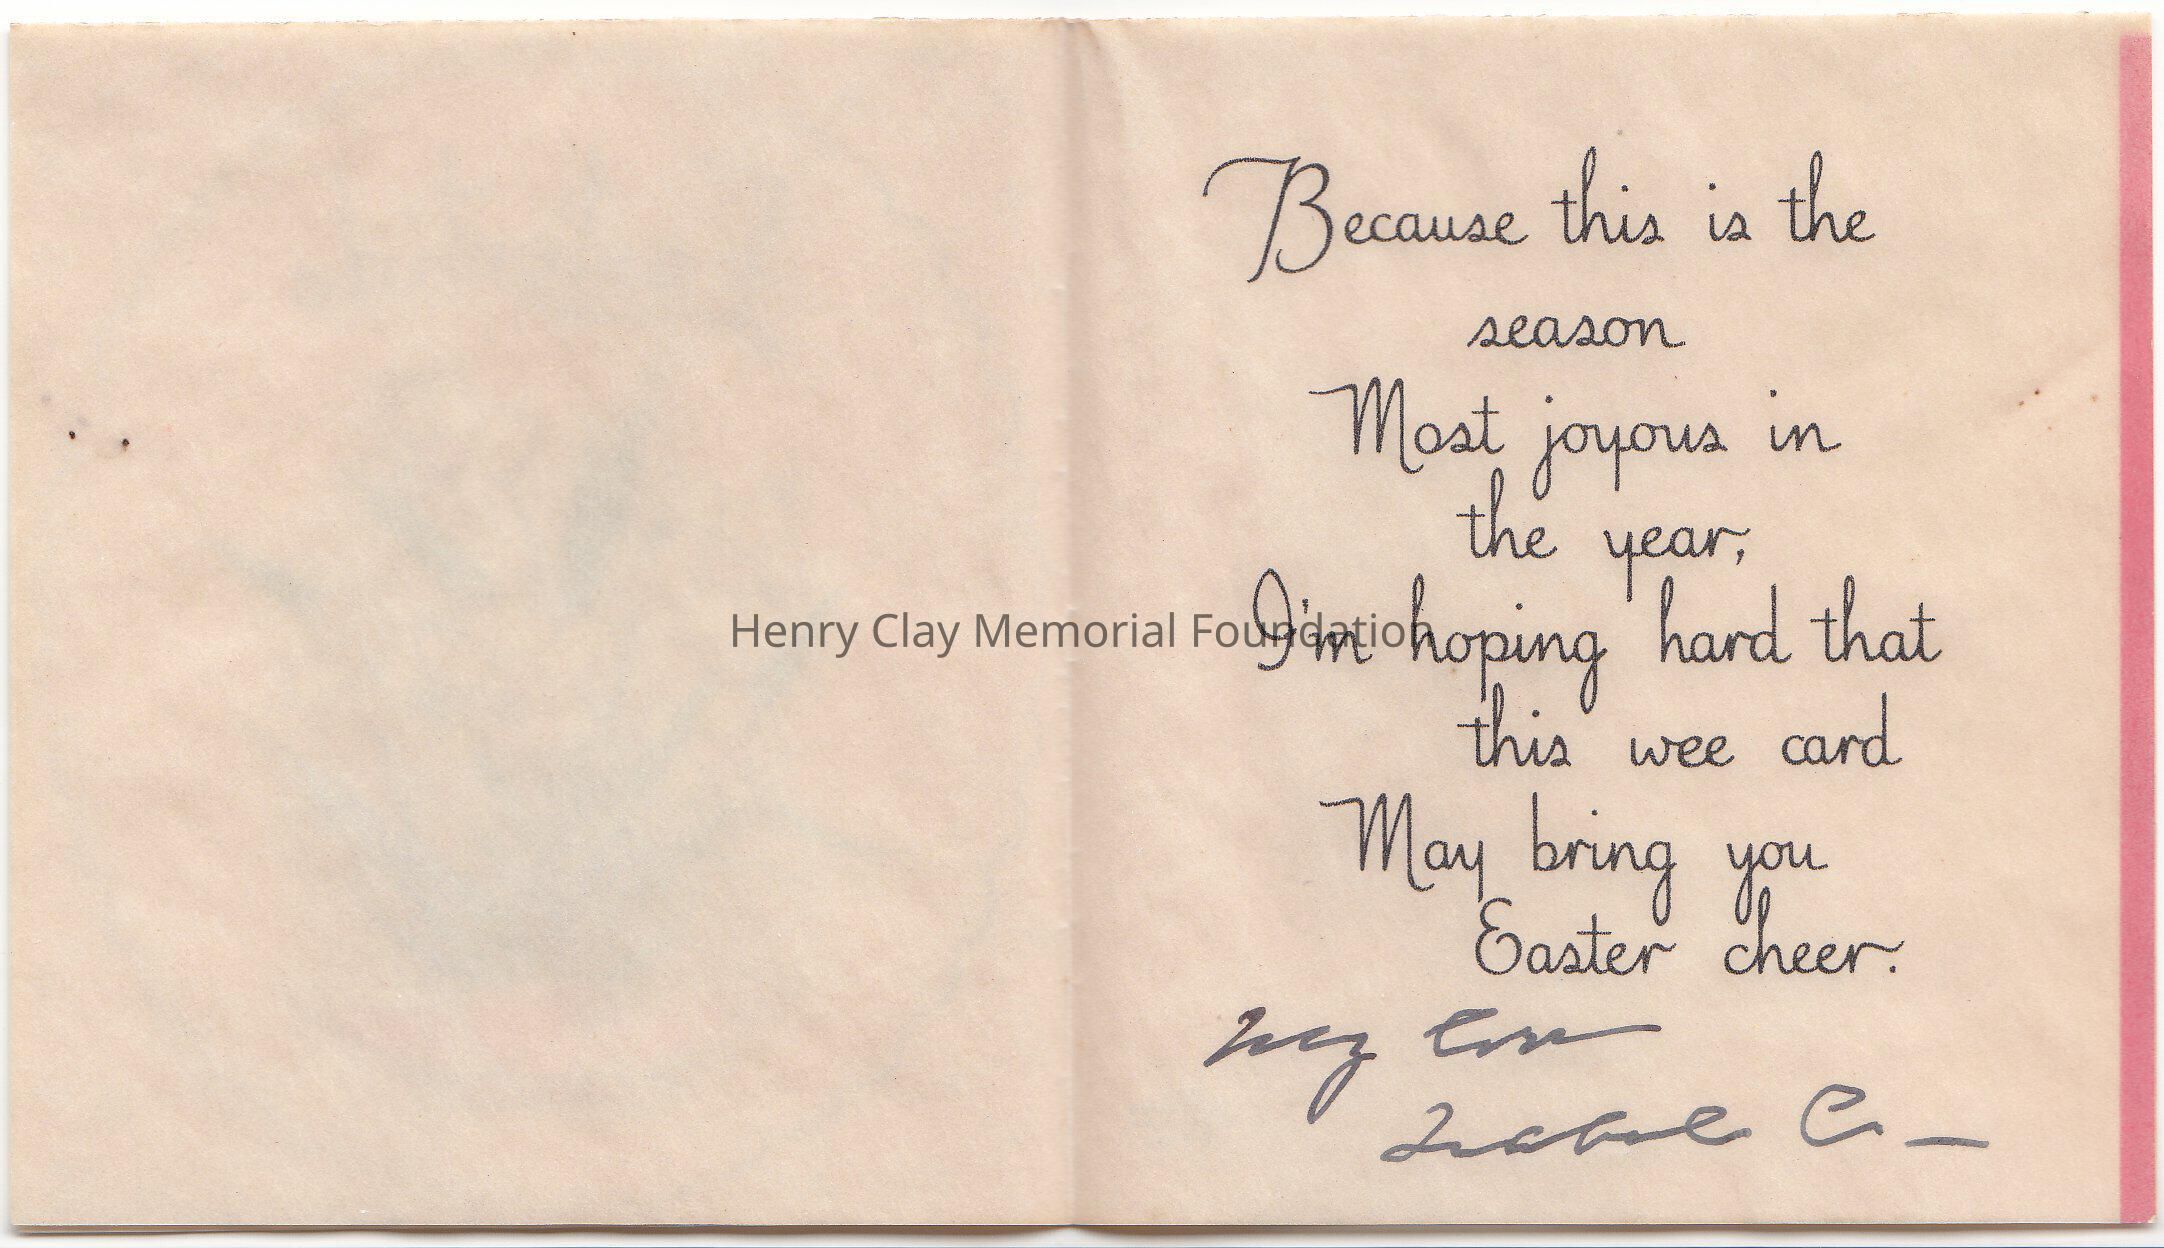 Because this is the
season
Most joyous in
the year,
I'm hoping hard that
this wee card
May bring you
Easter cheer.
My love
Isabel C. —
Henry Clay Memorial Foundation